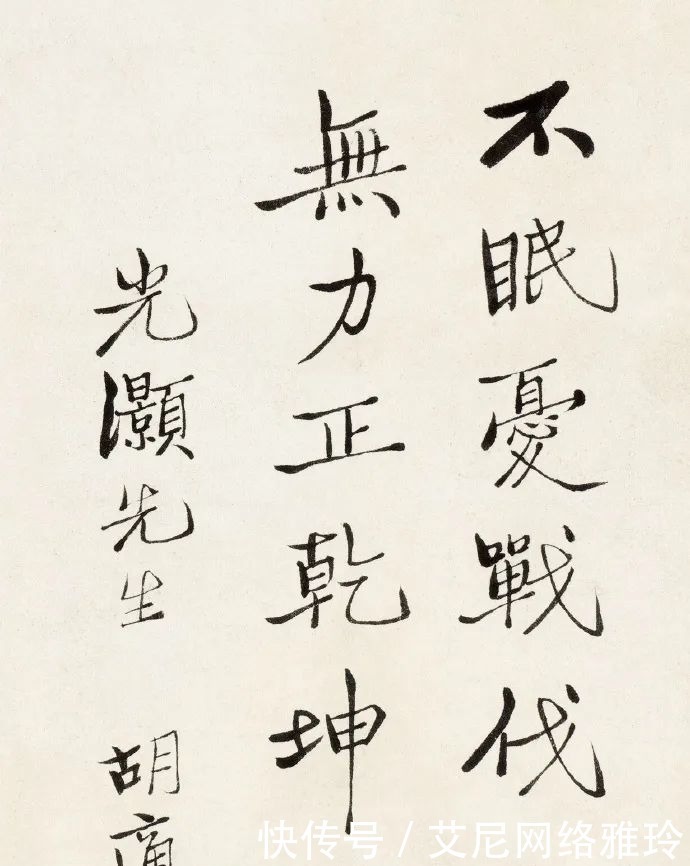 不眠憂戰伐
無力正乾坤
光灝先生
胡適
快传号/艾尼网络雅玲